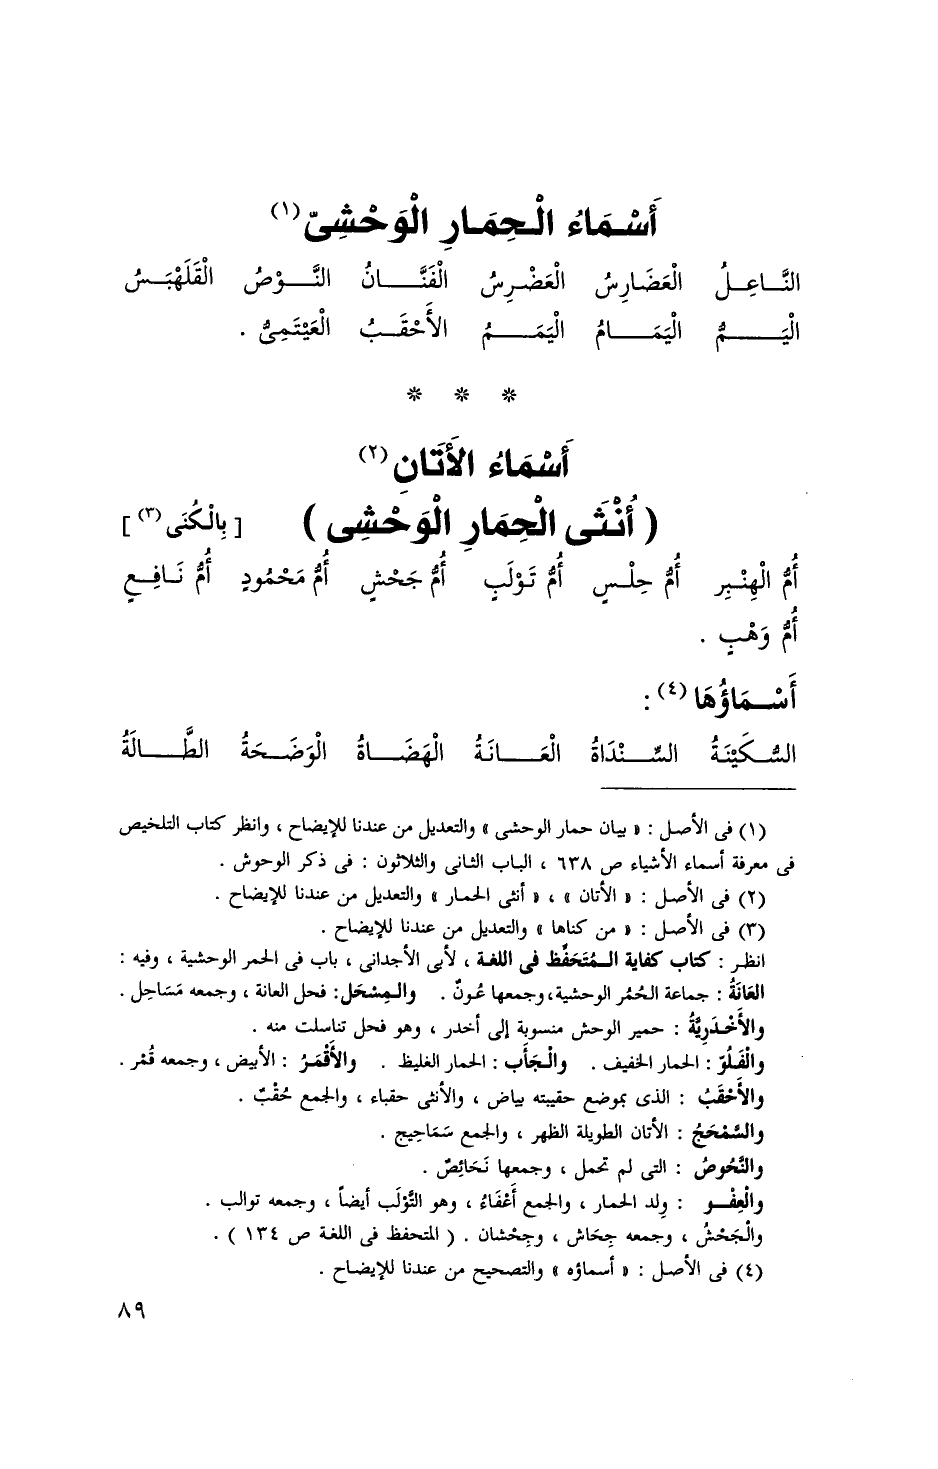 أَسْمَاءُ الْحِمَارِ الْوَحْشِىّ (١)
النَّاعِلُ الْعَضَارِسُ الْعَضْرِسُ الْفَنَّانُ النَّوْصُ الْقَلَهْبَسُ
الْيَمُّ الْيَمَامُ الْيَمَمُ الأَحْقَبُ الْعَيْثَمِىُّ .
* * *
أَسْمَاءُ الأَتَانِ (٢)
( أُنْثَى الْحِمَارِ الْوَحْشِى ) [ بِالْكُنَى (٣) ]
أُمُّ الْهِنْبِرِ أُمُّ حِلْسٍ أُمُّ تَوْلَبٍ أُمُّ جَحْشٍ أُمُّ مَحْمُودٍ أُمُّ نَافِعٍ
أُمُّ وَهْبٍ .
أَسْمَاؤُهَا (٤) :
السُّكَيْنَةُ السِّنْدَاةُ الْعَانَةُ الْهَضَاةُ الْوَضَحَةُ الطَّالَةُ
(١) فى الأصل : « بيان حمار الوحشى » والتعديل من عندنا للإيضاح ، وانظر كتاب التلخيص
فى معرفة أسماء الأشياء ص ٦٣٨ ، الباب الثانى والثلاثون : فى ذكر الوحوش .
(٢) فى الأصل : « الأتان » ، « أنثى الحمار » والتعديل من عندنا للإيضاح .
(٣) فى الأصل : « من كناها » والتعديل من عندنا للإيضاح .
انظر : كتاب كفاية الـمُتَحَفِّظ فى اللغة ، لأبى الأجدانى ، باب فى الحمر الوحشية ، وفيه :
العَانَةُ : جماعة الحُمُر الوحشية، وجمعها عُونٌ . والمِسْحَل: فحل العانة ، وجمعه مَسَاحِل .
والأَخْدَرِيَّةُ : حمير الوحش منسوبة إلى أخدر ، وهو فحل تناسلت منه .
والْفَلُوّ : الحمار الخفيف . والْجَأَب : الحمار الغليظ . والأَقْمَرُ : الأبيض ، وجمعه قُمْر .
والأَحْقَبُ : الذى بموضع حقيبته بياض ، والأنثى حقباء ، والجمع حُقْبٌ .
والسَّمْحَجُ : الأتان الطويلة الظهر ، والجمع سَمَاحِيج .
والنَّحُوصُ : التى لم تحمل ، وجمعها نَحَائِصٌ .
والْعِفْـو : وِلد الحمار ، والجمع أَعْفَاءُ ، وهو التَّوْلَب أيضاً ، وجمعه توالب .
والْجَحْشُ ، وجمعه جِحَاش ، وجِحْشان . ( المتحفظ فى اللغة ص ١٣٤ ) .
(٤) فى الأصل : « أسماؤه » والتصحيح من عندنا للإيضاح .
٨٩